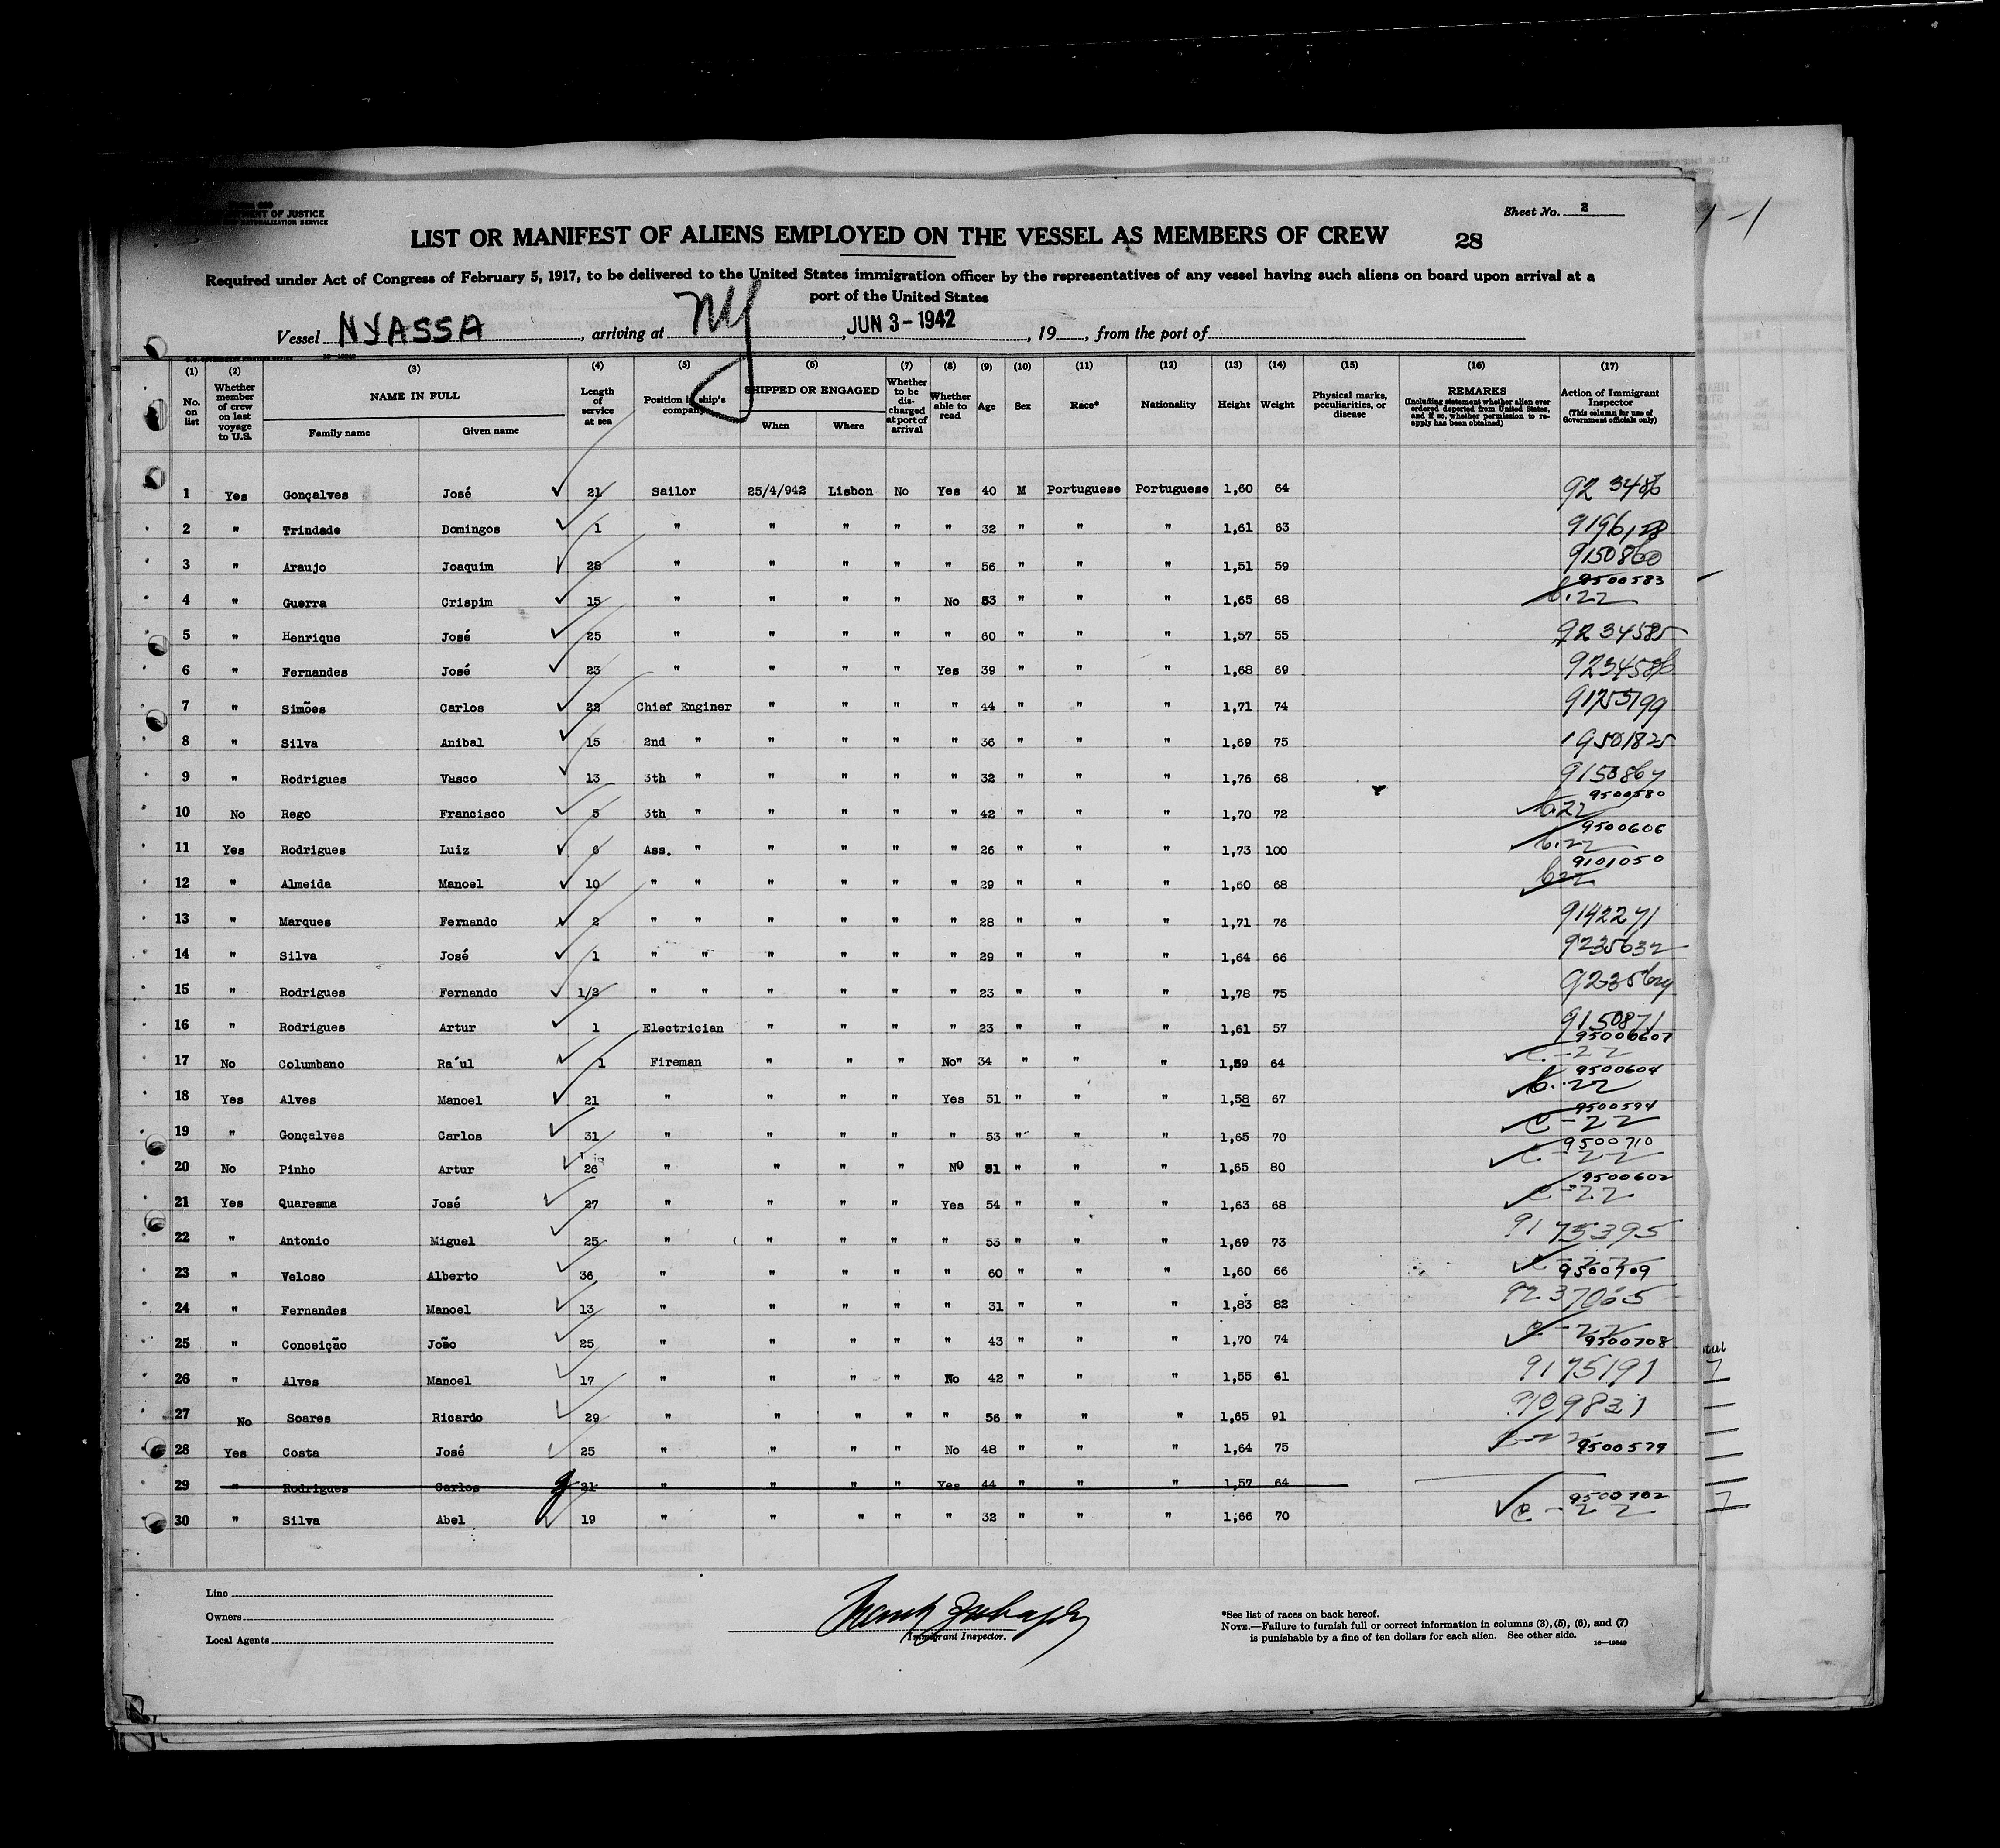 DEPARTMENT OF JUSTICE
NATURALIZATION SERVICE
Sheet No. 2
LIST OR MANIFEST OF ALIENS EMPLOYED ON THE VESSEL AS MEMBERS OF CREW 28
Required under Act of Congress of February 5, 1917, to be delivered to the United States immigration officer by the representatives of any vessel having such aliens on board upon arrival at a
port of the United States
Vessel NYASSA, arriving at NY, JUN 3-1942, 19, from the port of
(1) (2) (3) (4) (5) (6) (7) (8) (9) (10) (11) (12) (13) (14) (15) (16) (17)
No. on list
Whether member of crew on last voyage to U.S.
NAME IN FULL
Family name Given name
Length of service at sea
Position in ship's company
SHIPPED OR ENGAGED
When Where
Whether to be discharged at port of arrival
Whether able to read
Age
Sex
Race*
Nationality
Height
Weight
Physical marks, peculiarities, or disease
REMARKS
(Including statement whether alien ever ordered deported from United States, and if so, whether permission to reapply has been obtained)
Action of Immigrant Inspector
(This column for use of Government officials only)
1 Yes Gonçalves José 21 Sailor 25/4/942 Lisbon No Yes 40 M Portuguese Portuguese 1,60 64
2 " Trindade Domingos 1 " " " " " 32 " " " 1,61 63
3 " Araujo Joaquim 28 " " " " " 56 " " " 1,51 59 9150860
4 " Guerra Crispim 15 " " " " No 53 " " " 1,65 68 9500583
5 " Henrique José 25 " " " " " 60 " " " 1,57 55 9234585
6 " Fernandes José 23 " " " " Yes 39 " " " 1,68 69 9234586
7 " Simões Carlos 22 Chief Enginer " " " " 44 " " " 1,71 74
8 " Silva Anibal 15 2nd " " " " " 36 " " " 1,69 75
9 " Rodrigues Vasco 13 3th " " " " " 32 " " " 1,76 68
10 No Rego Francisco 5 3th " " " " " 42 " " " 1,70 72 9500580
11 Yes Rodrigues Luiz 6 Ass. " " " " " 26 " " " 1,73 100 9500606
12 " Almeida Manoel 10 " " " " " " 29 " " " 1,60 68 9101050
13 " Marques Fernando 2 " " " " " " 28 " " " 1,71 76 9142271
14 " Silva José 1 " " " " " " 29 " " " 1,64 66 9235632
15 " Rodrigues Fernando 1/2 " " " " " " 23 " " " 1,78 75
16 " Rodrigues Artur 1 Electrician " " " " 23 " " " 1,61 57 9150871
17 No Columbano Ra´ul 1 Fireman " " " No" 34 " " " 1,59 64
18 Yes Alves Manoel 21 " " " " Yes 51 " " " 1,58 67 9500604
19 " Gonçalves Carlos 31 " " " " " 53 " " " 1,65 70 9500594 C-22
20 No Pinho Artur 26 " " " " NO 51 " " " 1,65 80 9500710 C-22
21 Yes Quaresma José 27 " " " " Yes 54 " " " 1,63 68 9500602 C-22
22 " Antonio Miguel 25 " " " " " 53 " " " 1,69 73 9175395
23 " Veloso Alberto 36 " " " " " 60 " " " 1,60 66 9500709
24 " Fernandes Manoel 13 " " " " " 31 " " " 1,83 82 9237065
25 " Conceição João 25 " " " " " 43 " " " 1,70 74 C-22 9500708
26 " Alves Manoel 17 " " " " No 42 " " " 1,55 61 9175191
27 No Soares Ricardo 29 " " " " " 56 " " " 1,65 91 9109831
28 Yes Costa José 25 " " " " No 48 " " " 1,64 75 9500579
29 " Rodrigues Carlos 21 " " " " Yes 44 " " " 1,57 64
30 " Silva Abel 19 " " " " " 32 " " " 1,66 70 9500702 C-22
Line
Owners
Local Agents
Immigrant Inspector.
*See list of races on back hereof.
NOTE.—Failure to furnish full or correct information in columns (3), (5), (6), and (7)
is punishable by a fine of ten dollars for each alien. See other side. 16—19340